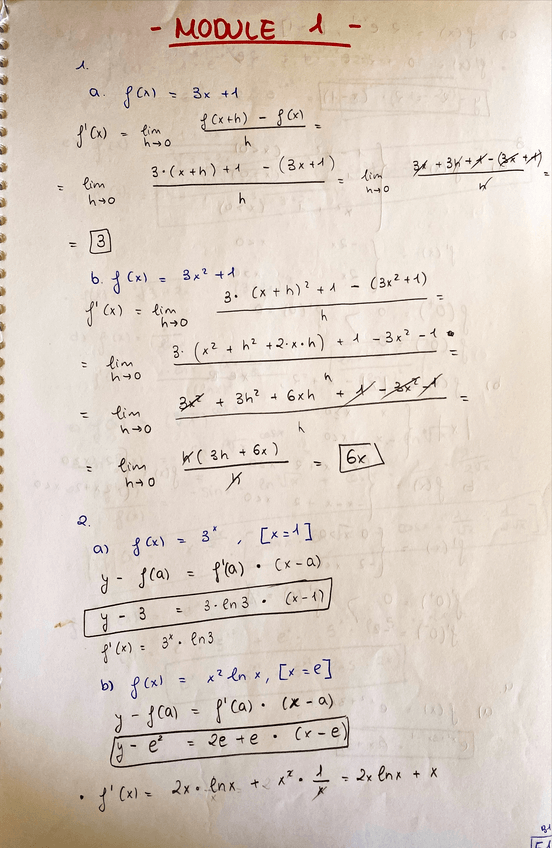 - MODULE 1 -
1.
a. f(x) = 3x+1
f'(x) = lim h→0 (f(x+h) - f(x))/h =
= lim h→0 (3·(x+h)+1 - (3x+1))/h = lim h→0 (3x + 3h + 1 - (3x + 1))/h =
= 3
b. f(x) = 3x² + 1
f'(x) = lim h→0 (3· (x+h)² + 1 - (3x²+1))/h =
= lim h→0 (3· (x² + h² + 2·x·h) + 1 - 3x² - 1)/h =
= lim h→0 (3x² + 3h² + 6xh + 1 - 3x² - 1)/h =
= lim h→0 (h(3h + 6x))/h = 6x
2.
a) f(x) = 3ˣ , [x=1]
y - f(a) = f'(a) · (x-a)
y - 3 = 3·ln3 · (x-1)
f'(x) = 3ˣ · ln3
b) f(x) = x² ln x, [x=e]
y - f(a) = f'(a) · (x-a)
y - e² = 2e + e · (x-e)
· f'(x) = 2x · lnx + x² · 1/x = 2x lnx + x